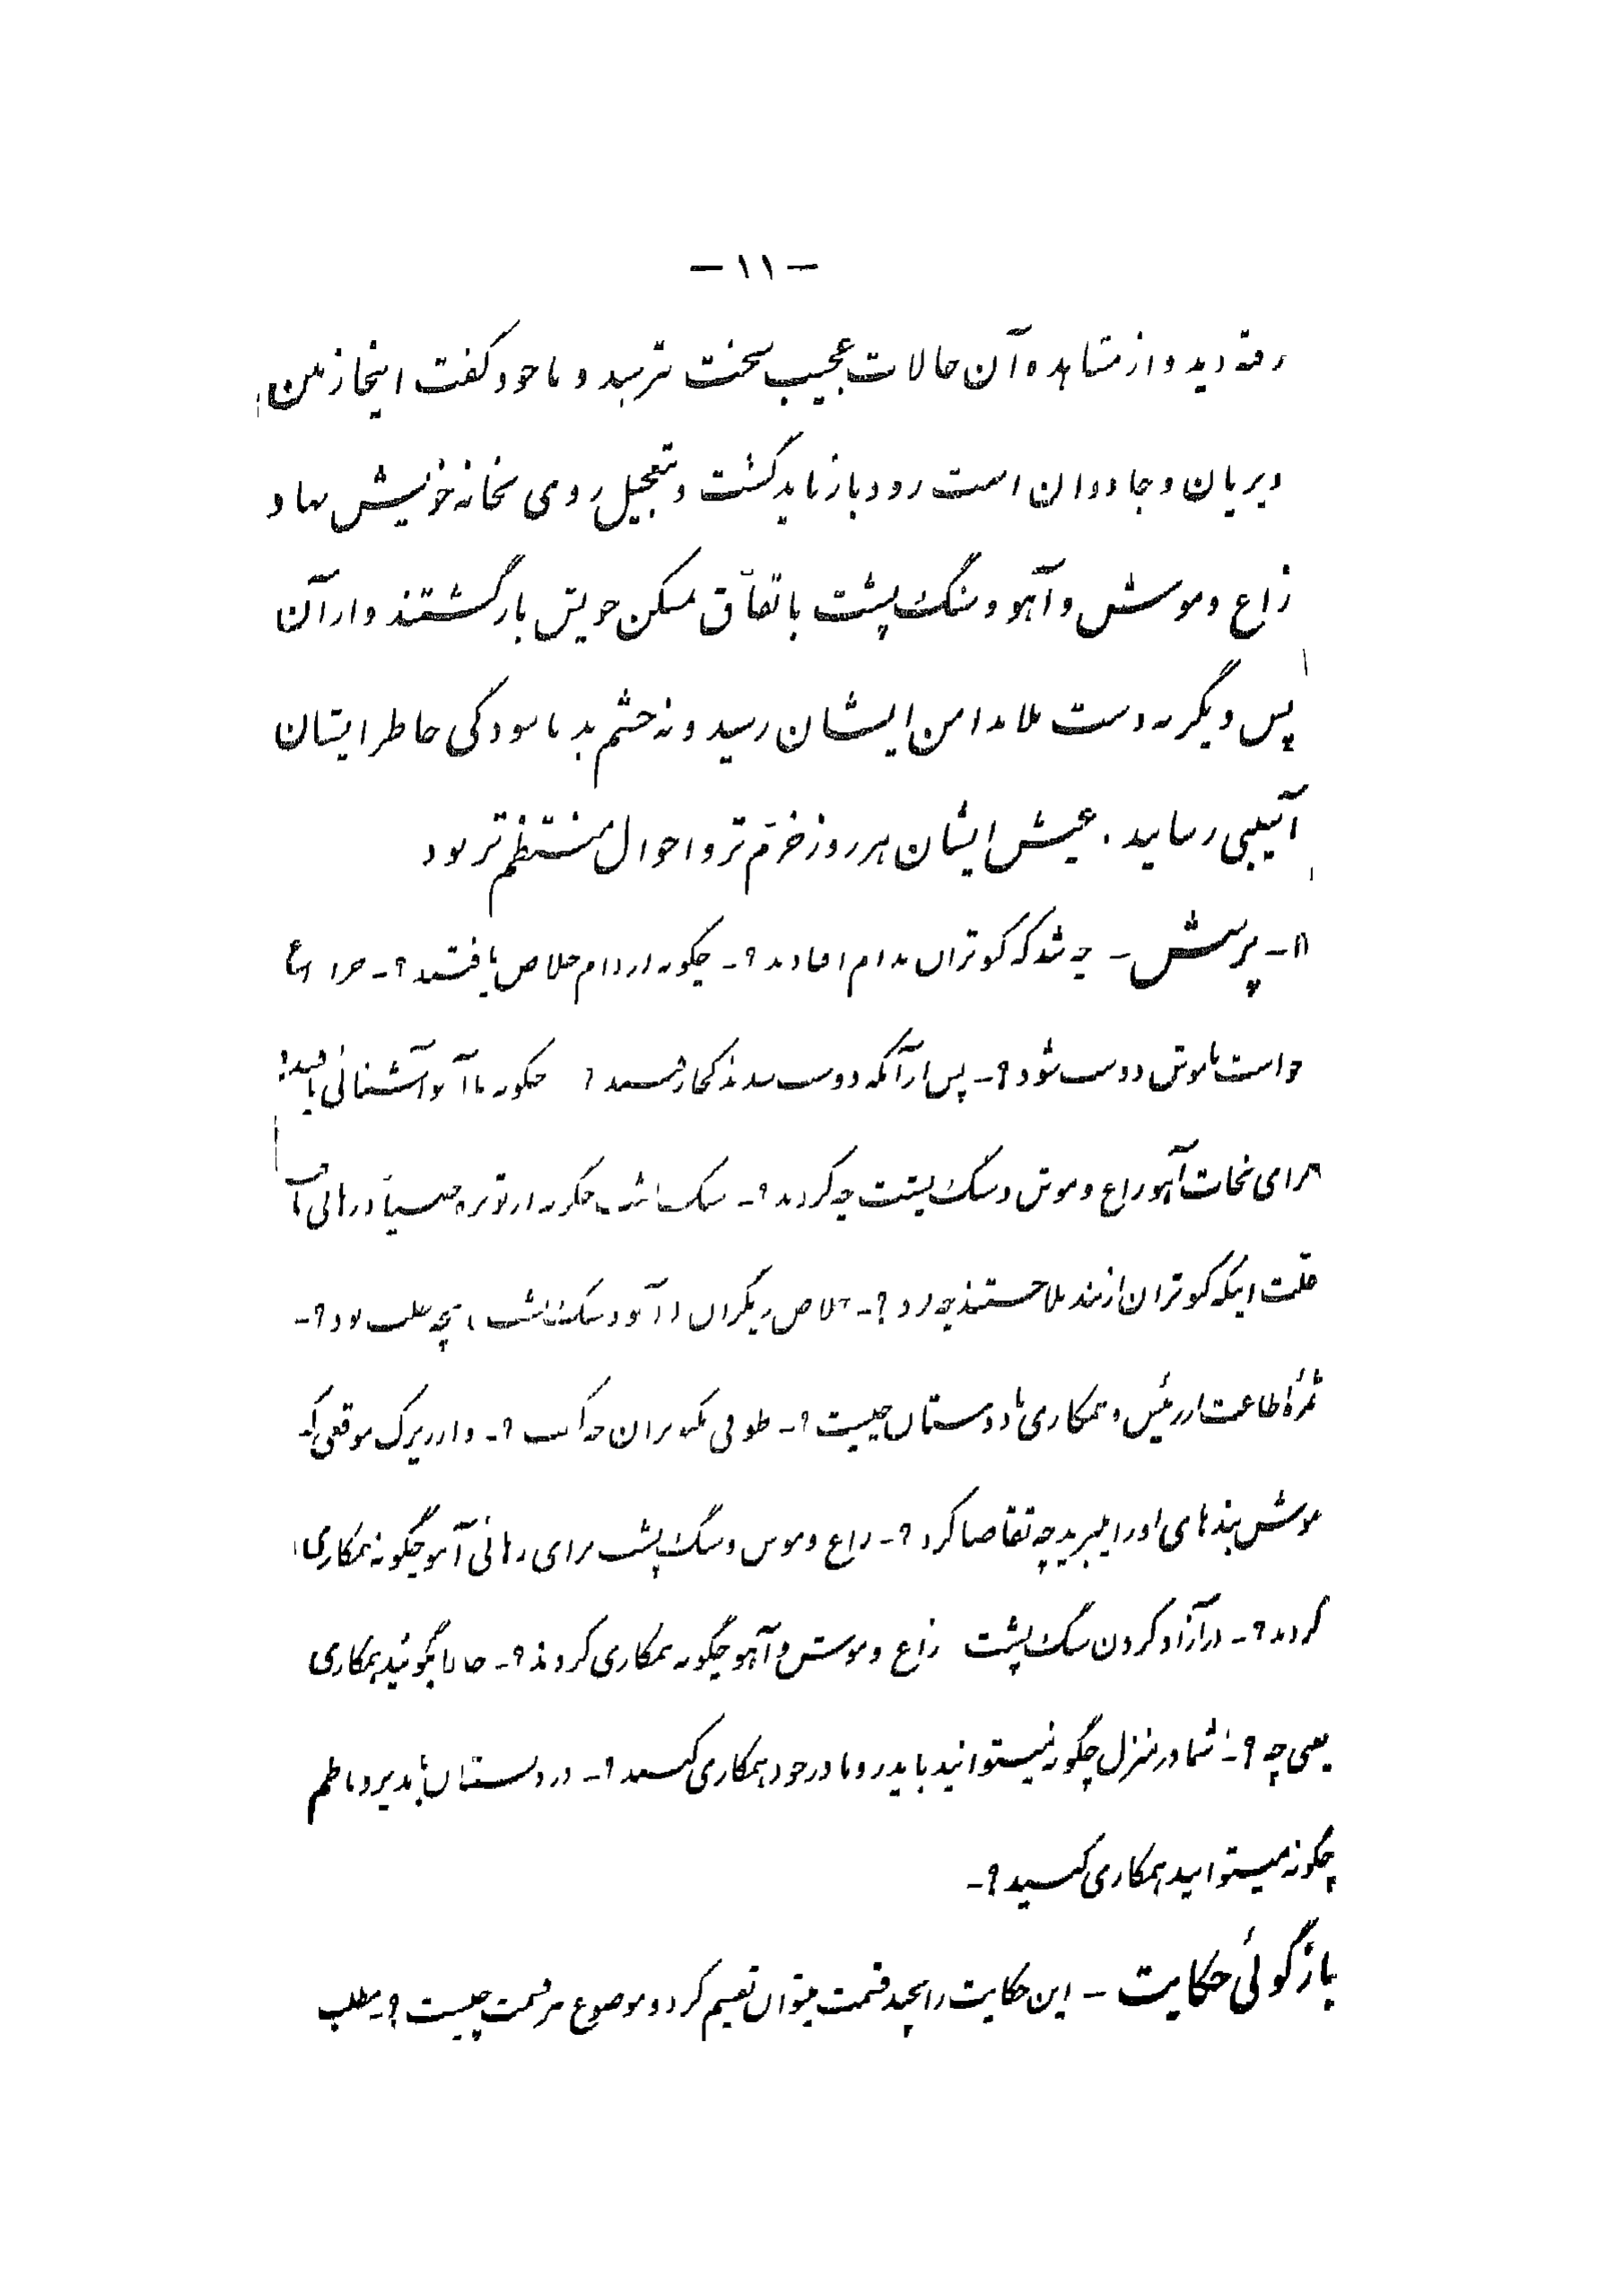 — ۱۱ —
رفته دید و از مشاهده آن حالات عجیب سخت ترسید و با خود گفت اینجا زمین
پریان و جادوان است زود باز باید گشت و بتعجیل روی بخانه خویش نهاد و
زاغ و موش و آهو و سنگ پشت باتفاق بمسکن خویش باز گشتند و از آن
پس دیگر نه دست بلا بدامن ایشان رسید و نه چشم بد بآسودگی خاطر ایشان
آسیبی رسانید. عیش ایشان هر روز خرم تر و احوال منتظم تر بود
۱۱- پرسش – چه شد که کبوتران بدام افتادند ؟- چگونه از دام خلاص یافتند ؟- چرا زاغ
خواست با موش دوست شود ؟- پس از آنکه دوست شدند کجا رفتند ؟ چگونه با آهو آشنائی یافتند؟
برای نجات آهو زاغ و موش و سنگ پشت چه کردند ؟- سنگ پشت چگونه از توبره صیاد رهائی یافت
علت اینکه کبوتران از بند بلا جستند چه بود ؟- خلاص دیگران از آهو و سنگ پشت بچه علت بود ؟-
ثمره اطاعت از رئیس و همکاری با دوستان چیست ؟- طوقی کبوتران که است ؟- و از زیرک موقعی که
موش بندهای او را میبرید چه تقاضا کرد ؟- زاغ و موش و سنگ پشت برای رهائی آهو چگونه همکاری
کردند ؟- در آزاد کردن سنگ پشت زاغ و موش و آهو چگونه همکاری کردند ؟- حالا بگوئید همکاری
یعنی چه ؟- شما در منزل چگونه میتوانید با پدر و مادر خود همکاری کنید ؟- در دبستان با مدیر و ناظم
چگونه میتوانید همکاری کنید ؟-
بازگوئی حکایت – این حکایت را بچند قسمت میتوان تقسیم کرد و موضوع هر قسمت چیست ؟- مطلب